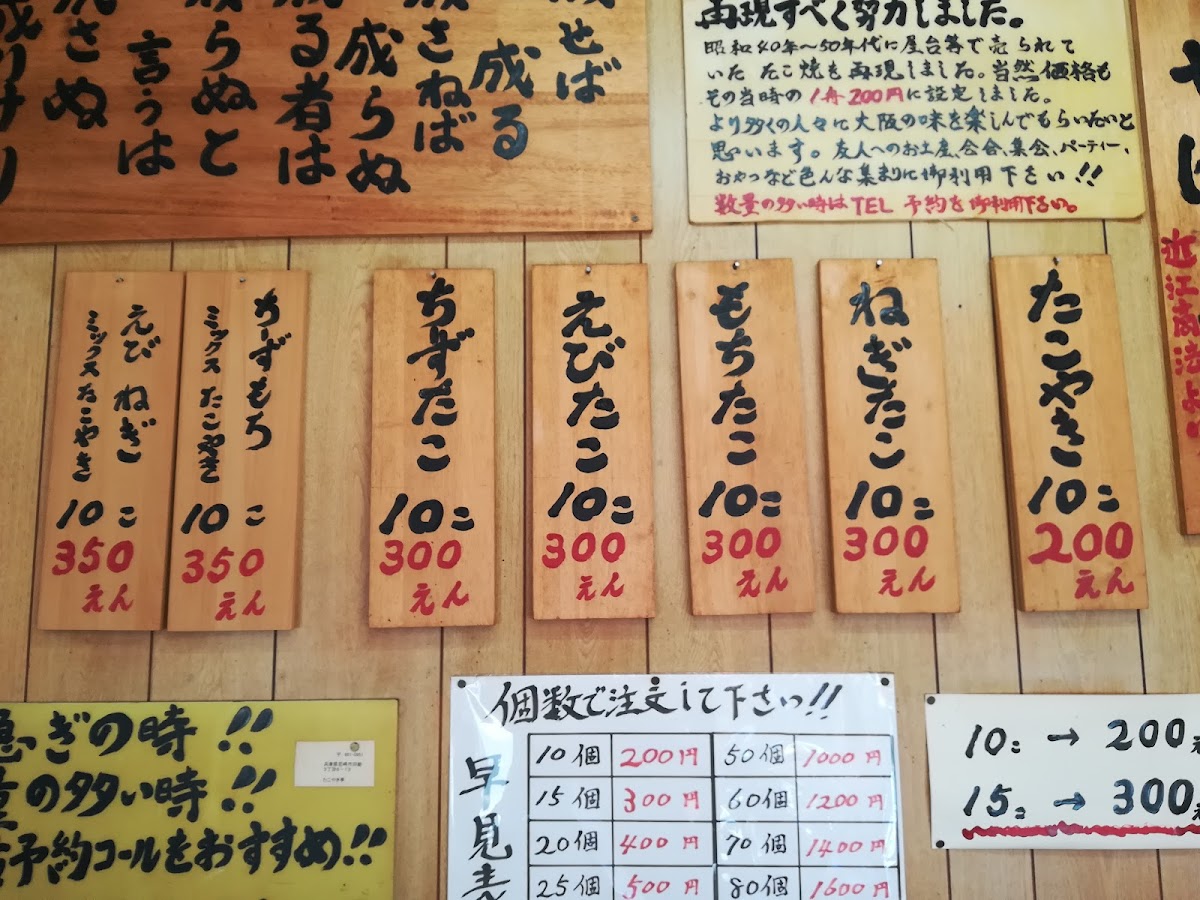 せば
成る
さねば
成らぬ
る者は
らぬと
言うは
さぬ
再現すべく努力しました。
昭和40年〜50年代に屋台等で売られて
いた たこ焼を再現しました。当然価格も
その当時の 1舟200円に設定しました。
より多くの人々に大阪の味を楽しんでもらいたいと
思います。友人へのお土産、会合、集会、パーティー、
おやつなど色んな集まりに御利用下さい!!
数量の多い時はTEL 予約を御利用下さい。
たこやき
10こ
200
えん
ねぎたこ
10こ
300
えん
もちたこ
10こ
300
えん
えびたこ
10こ
300
えん
ちーずたこ
10こ
300
えん
ちーずもち
ミックス たこやき
10こ
350
えん
えび ねぎ
ミックス たこやき
10こ
350
えん
急ぎの時!!
の多い時!!
予約コールをおすすめ!!
個数で注文して下さい!!
早見表
10個 200円 50個 1000円
15個 300円 60個 1200円
20個 400円 70個 1400円
25個 500円 80個 1600円
10こ → 200
15こ → 300